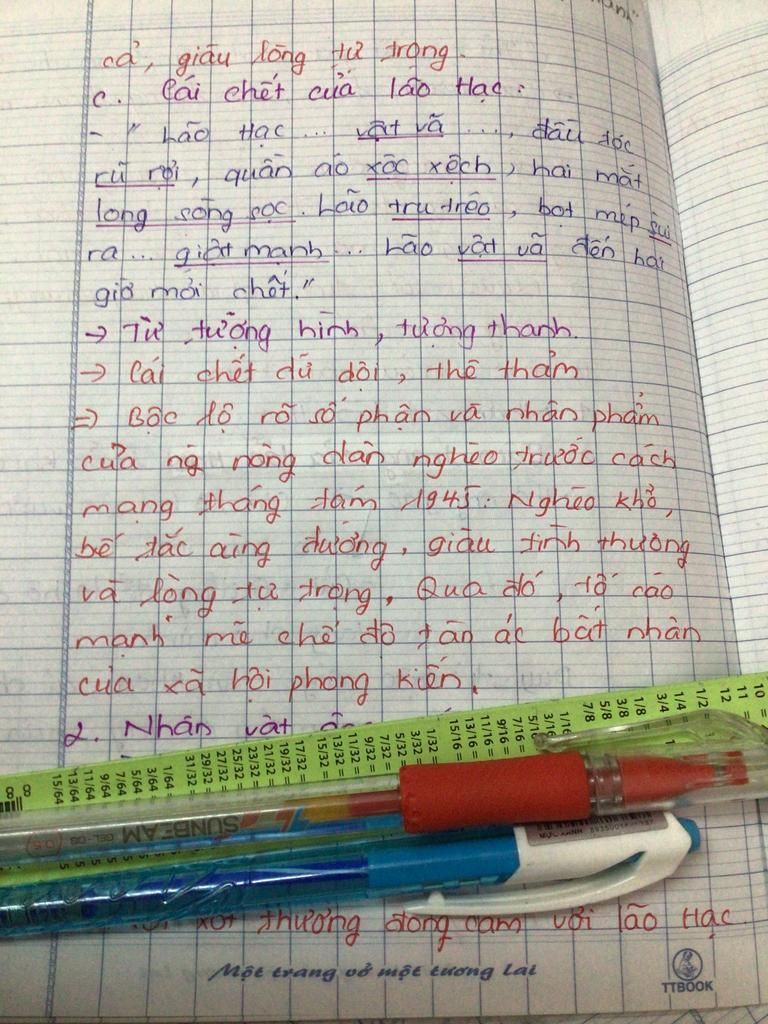 cả, giàu lòng tự trọng.
c. Cái chết của lão Hạc:
- " Lão Hạc ... vật vã ..., đầu tóc
rũ rợi, quần áo xộc xệch, hai mắt
long sòng sọc. Lão tru tréo, bọt mép sùi
ra ... giật mạnh ... Lão vật vã đến hai
giờ mới chết."
→ Từ tượng hình, tượng thanh.
→ Cái chết dữ dội, thê thảm
⇒ Bộc lộ rõ số phận và nhân phẩm
của ng nông dân nghèo trước cách
mạng tháng tám 1945: Nghèo khổ,
bế tắc cùng đường, giàu tình thương
và lòng tự trọng. Qua đó, tố cáo
mạnh mẽ chế độ tàn ác bất nhân
của xã hội phong kiến.
2. Nhân vật
10
11
12
1/2 =
1/4 =
3/4 =
1/8 =
3/8 =
5/8 =
7/8 =
1/16 =
3/16
5/16
7/16 =
9/16 =
11/16 =
13/16 =
15/16 =
1/32 =
3/32 =
5/32 =
7/32 =
9/32 =
11/32 =
13/32 =
15/32 =
17/32 =
19/32 =
21/32 =
23/32 =
25/32 =
27/32 =
29/32 =
31/32 =
1/64 =
3/64 =
5/64 =
7/64 =
9/64 =
11/64 =
13/64 =
15/64 =
SUNBEAM GEL-08 0.5
xót thương đồng cảm với lão Hạc.
Một trang vở một tương lai
TTBOOK